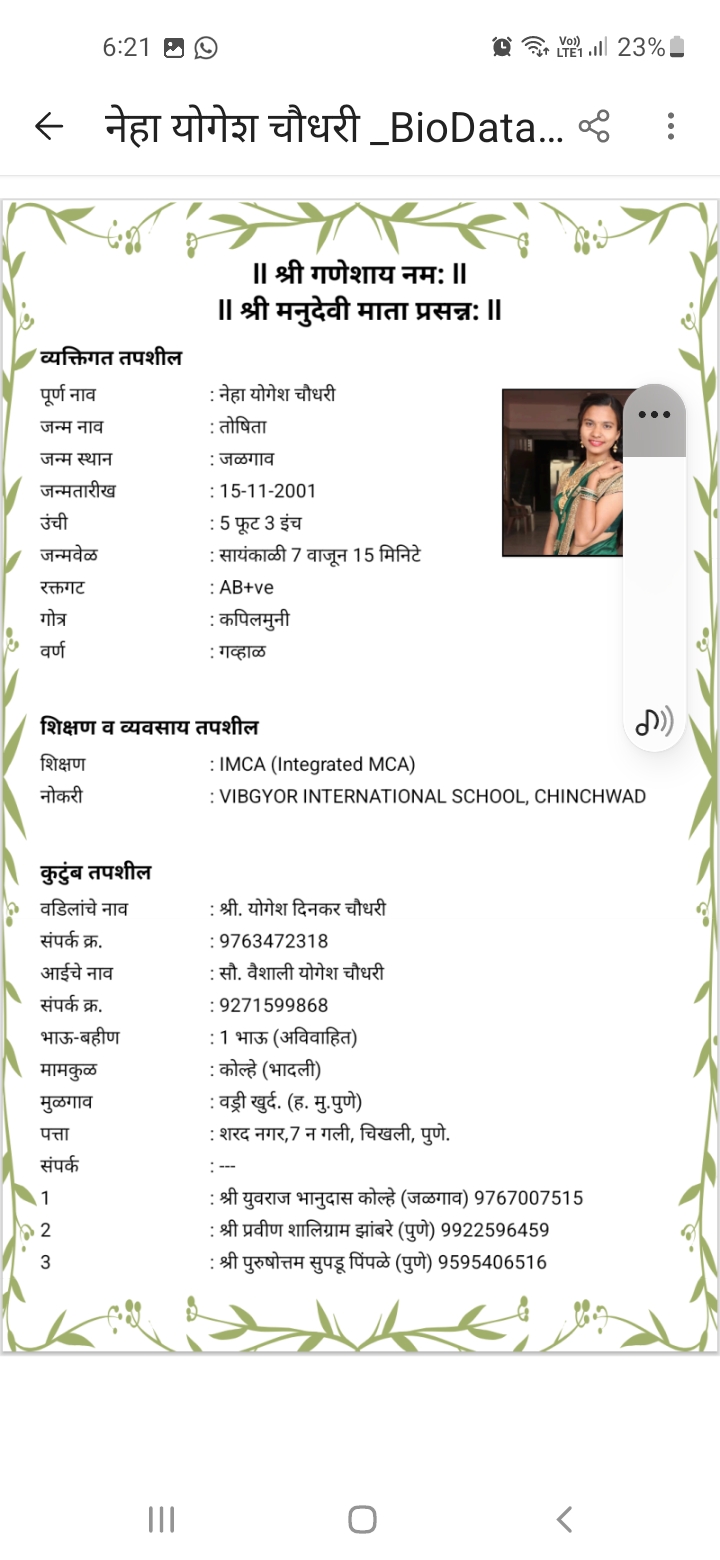 6:21 Vo)) LTE1 23%
नेहा योगेश चौधरी _BioData...
॥ श्री गणेशाय नम: ॥
॥ श्री मनुदेवी माता प्रसन्न: ॥
व्यक्तिगत तपशील
पूर्ण नाव : नेहा योगेश चौधरी
जन्म नाव : तोषिता
जन्म स्थान : जळगाव
जन्मतारीख : 15-11-2001
उंची : 5 फूट 3 इंच
जन्मवेळ : सायंकाळी 7 वाजून 15 मिनिटे
रक्तगट : AB+ve
गोत्र : कपिलमुनी
वर्ण : गव्हाळ
शिक्षण व व्यवसाय तपशील
शिक्षण : IMCA (Integrated MCA)
नोकरी : VIBGYOR INTERNATIONAL SCHOOL, CHINCHWAD
कुटुंब तपशील
वडिलांचे नाव : श्री. योगेश दिनकर चौधरी
संपर्क क्र. : 9763472318
आईचे नाव : सौ. वैशाली योगेश चौधरी
संपर्क क्र. : 9271599868
भाऊ-बहीण : 1 भाऊ (अविवाहित)
मामकुळ : कोल्हे (भादली)
मुळगाव : वड्री खुर्द. (ह. मु.पुणे)
पत्ता : शरद नगर,7 न गली, चिखली, पुणे.
संपर्क : ---
1 : श्री युवराज भानुदास कोल्हे (जळगाव) 9767007515
2 : श्री प्रवीण शालिग्राम झांबरे (पुणे) 9922596459
3 : श्री पुरुषोत्तम सुपडू पिंपळे (पुणे) 9595406516